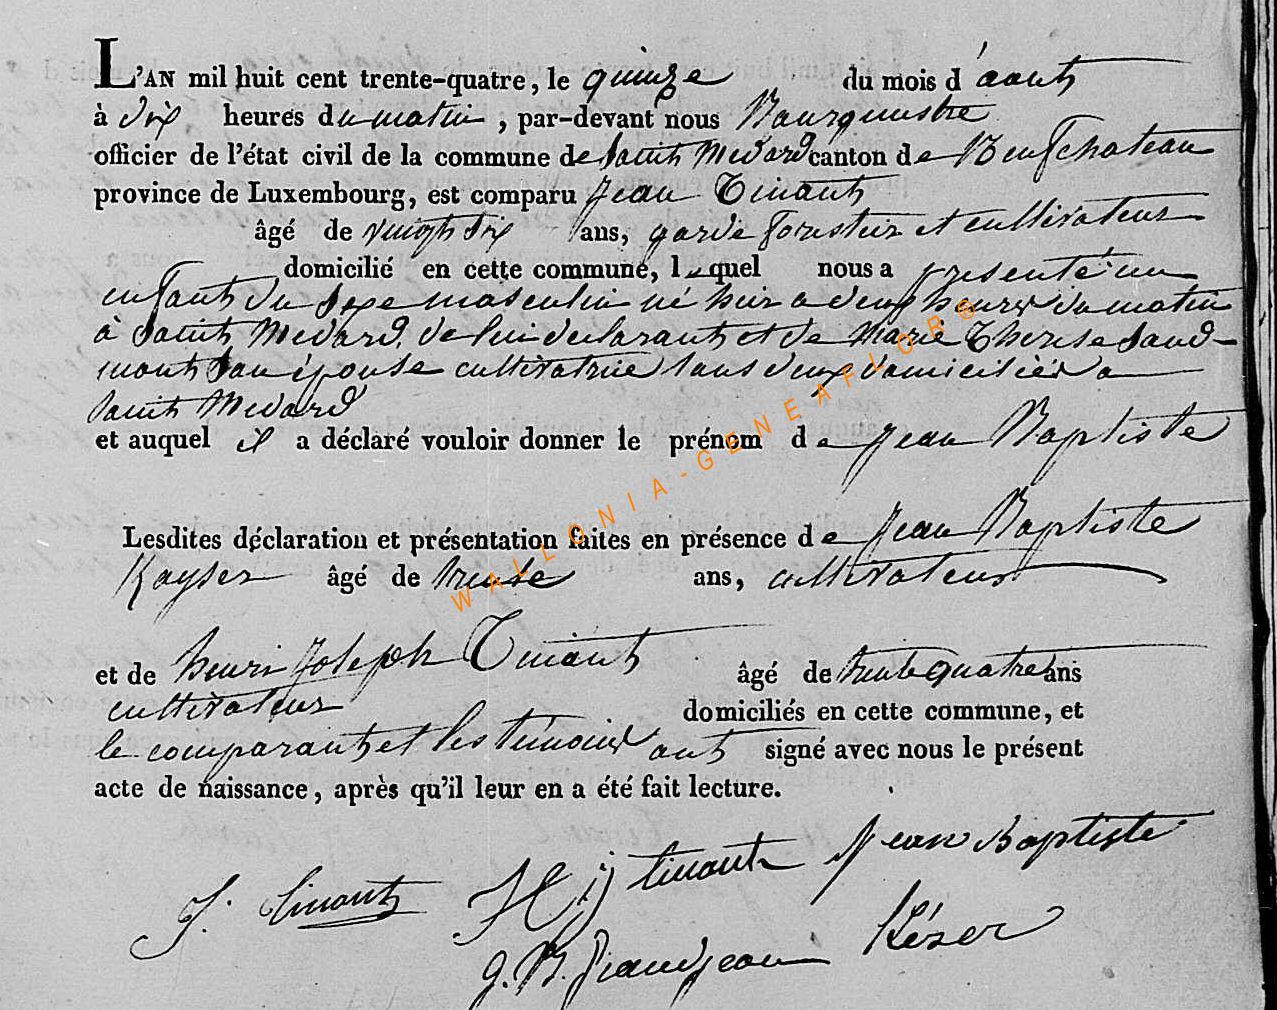 L'AN mil huit cent trente-quatre, le quinze du mois d'aout
à dix heures du matin, par-devant nous Bourgmestre
officier de l'état civil de la commune de Saint Medard canton de Neufchateau
province de Luxembourg, est comparu Jean Tinant
âgé de vingt six ans, garde forestier et cultivateur
domicilié en cette commune, lequel nous a presenté un
enfant du sexe masculin né hier a deux heures du matin
à Saint Medard, de lui declarant et de Marie Therese Sand-
mont son épouse cultivatrice tous deux domiciliés a
Saint Medard
et auquel il a déclaré vouloir donner le prénom de Jean Baptiste
Lesdites déclaration et présentation faites en présence de Jean Baptiste
Kayser âgé de trente ans, cultivateur
et de henri Joseph Tinant âgé de trente quatre ans
cultivateur domiciliés en cette commune, et
le comparant et les témoins ont signé avec nous le présent
acte de naissance, après qu'il leur en a été fait lecture.
J. Tinant H j tinant Jean Baptiste
Késer
J. B. Grandjean
WALLONIA-GENEAFLORG